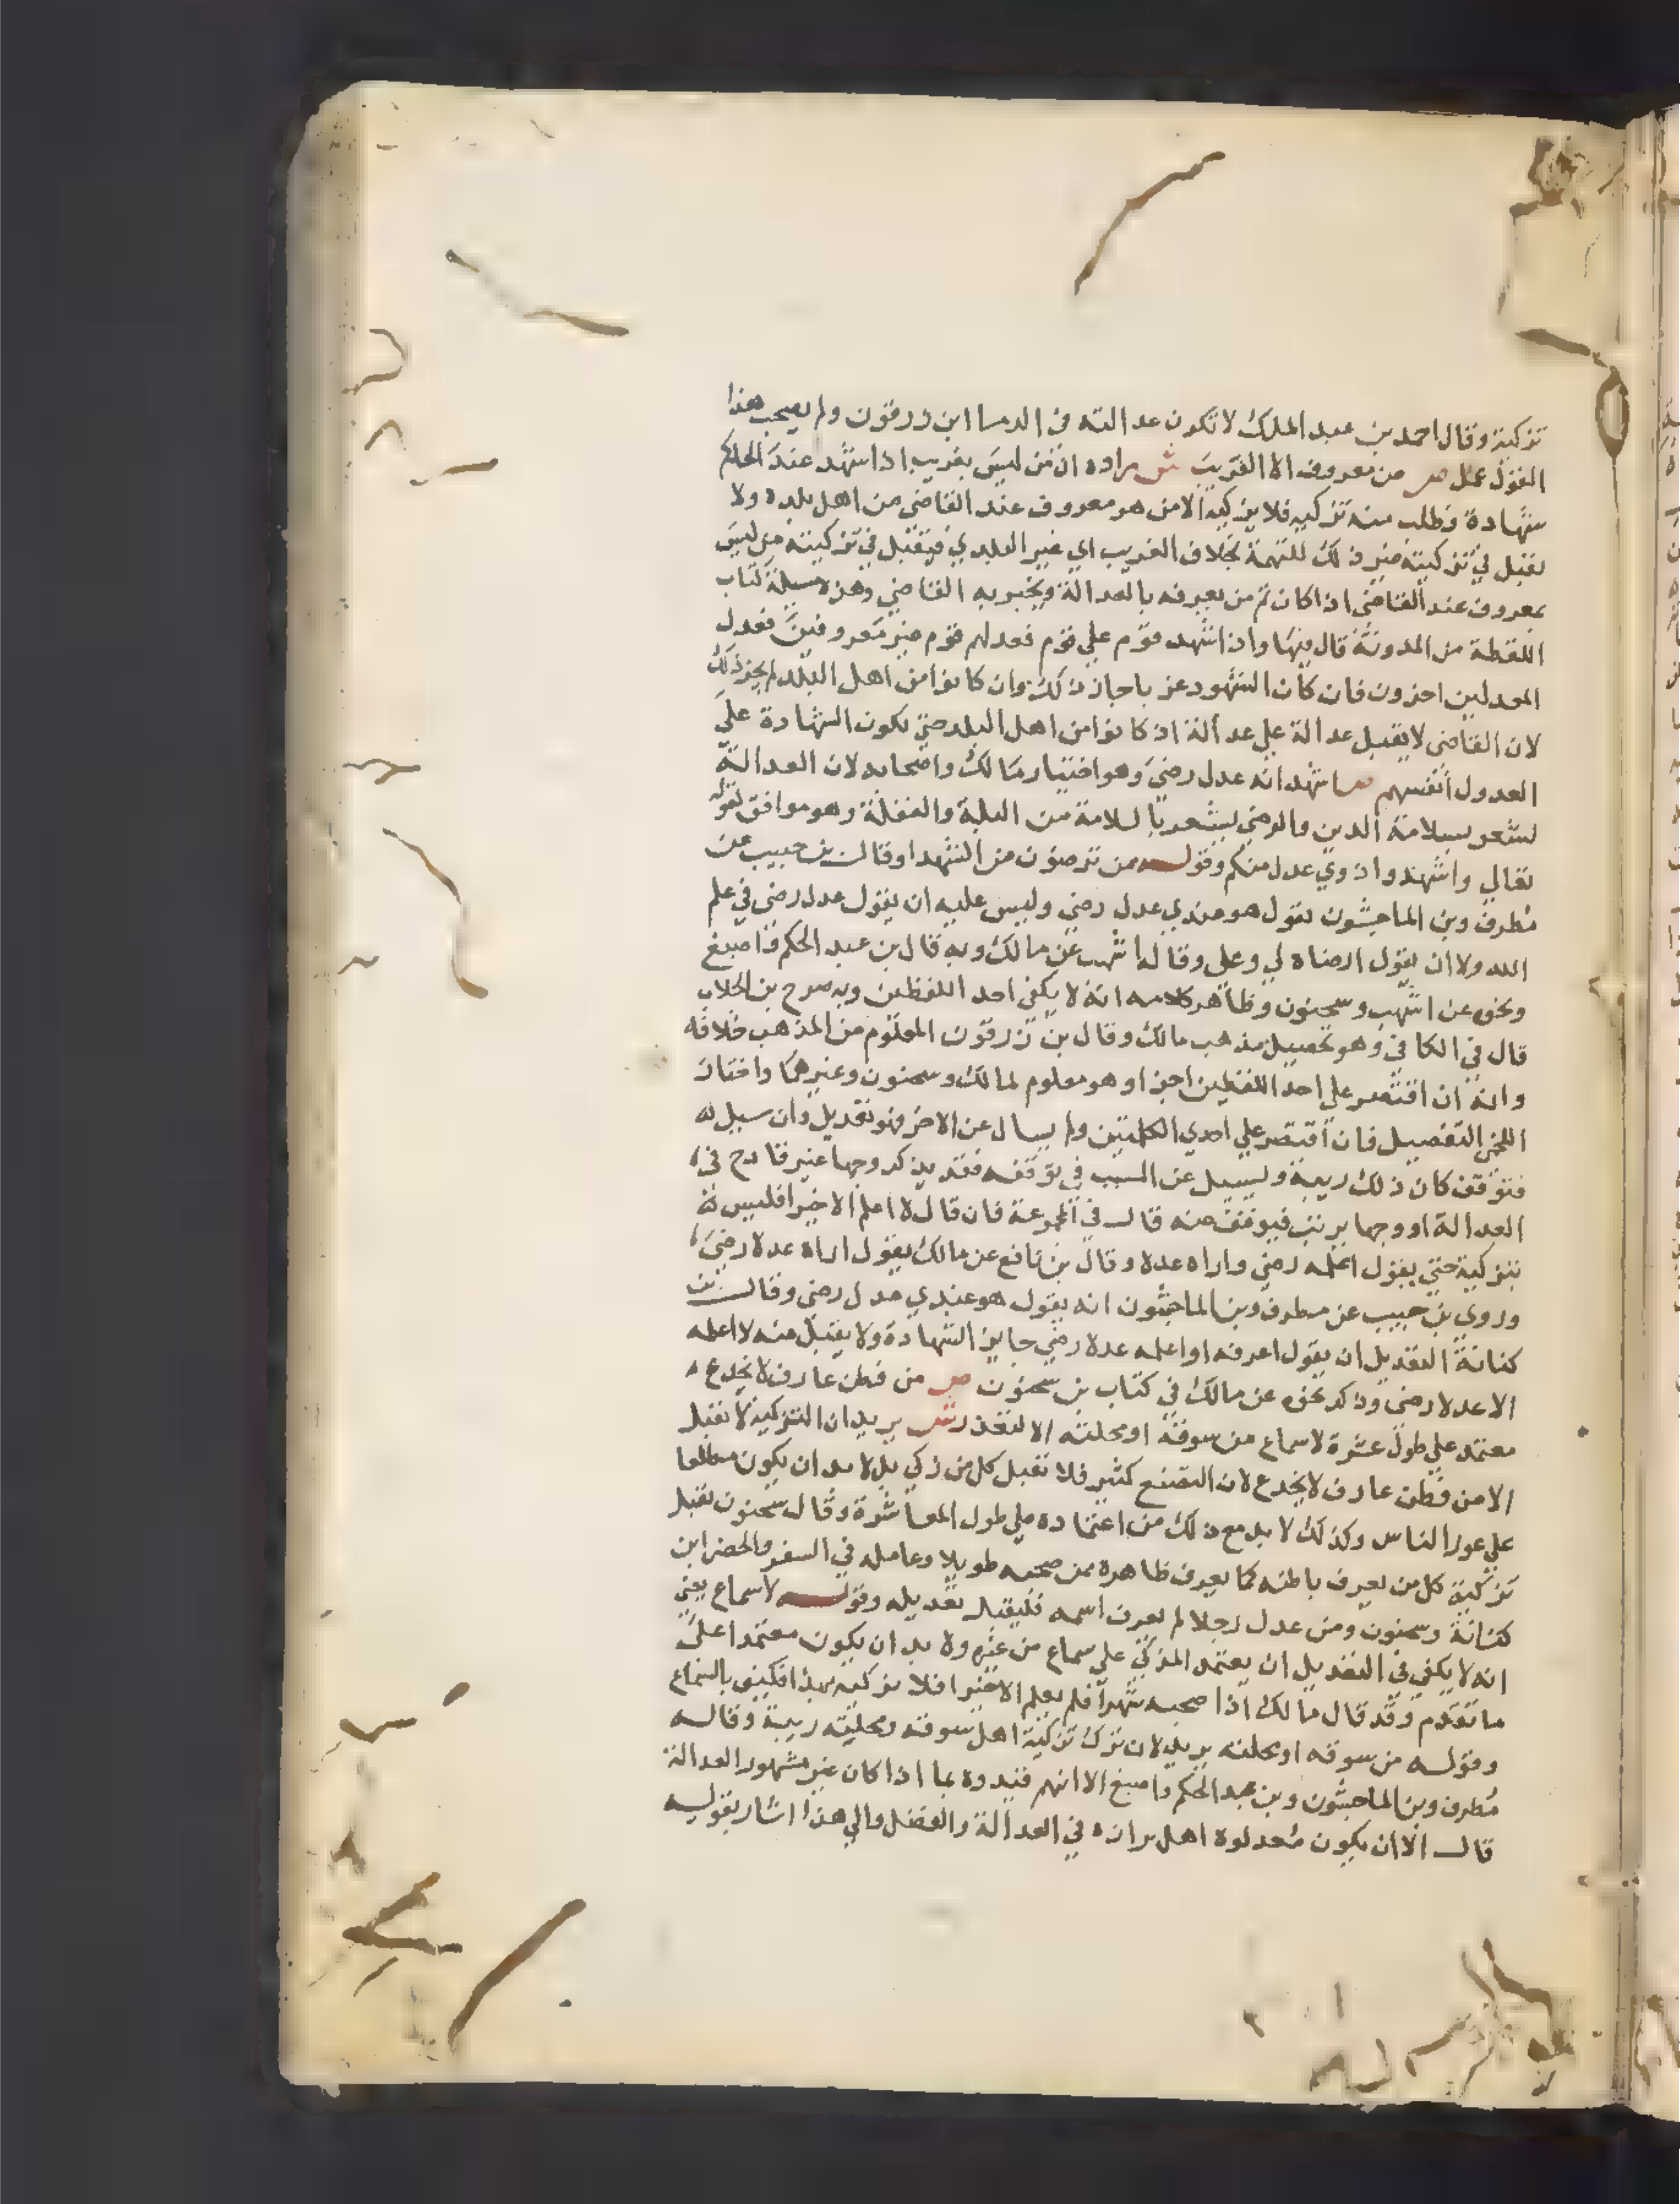 تزكية وقال احمد بن عبد الملك لا تكون عدالته في الدما ابن زرقون ولم يصحب هذا
القول عمل ص من معروف الا الغريب ش مراده ان من ليس بغريب اذا شهد عند الحاكم
شهادة وطلب منه تزكيه فلا يزكيه الا من هو معروف عند القاضي من اهل بلده ولا
يقبل في تزكيته غير ذلك للتهمة بخلاف الغريب اي غير البلدي فيقبل في تزكيته من ليس
بمعروف عند القاضي اذا كان ثم من يعرفه بالعدالة ويخبر به القاضي وهذه مسيلة كتاب
اللقطة من المدونة قال فيها واذا شهد قوم علي قوم فعدلهم قوم غير معروفين فعدل
المعدلين اخرون فان كان الشهود غربا جاز ذلك وان كانوا من اهل البلد لم يجز ذلك
لان القاضي لا يقبل عدالة علي عدالة اذ كانوا من اهل البلد حتي تكون الشهادة علي
العدول انفسهم ص اشهد انه عدل رضي وهو اختيار مالك واصحابه لان العدالة
تشعر بسلامة الدين والرضي يشعر بالسلامة من البله والغفلة وهو موافق لقوله
تعالي واشهدوا ذوي عدل منكم وقوله ممن ترضون من الشهدا وقال بن حبيب عن
مطرف وبن الماجشون يقول هو عندي عدل رضي وليس عليه ان يقول عدل رضي في علم
الله ولا ان يقول ارضاه لي وعلي وقاله اشهب عن مالك وبه قال بن عبد الحكم واصبغ
ونحوه عن اشهب وسحنون وظاهر كلامه انه لا يكفي احد اللفظين وبه صرح بن الجلاب
قال في الكافي وهو تحصيل مذهب مالك وقال بن زرقون المعلوم من المذهب خلافه
وانه ان اقتصر علي احد اللفظين اجزا وهو معلوم لمالك وسحنون وغيرهما واختار
اللخمي التفصيل فان اقتصر علي احدي الكلمتين ولم يسال عن الاخر فهو تعديل وان سيل
فتوقف كان ذلك ريبة ويسيل عن السبب في توقفه فقد يذكر وجها غير قادح في
العدالة او وجها يريب فيوقف عنه قال في المجموعة فان قال لا اعلم الا خيرا فليس له
بتزكية حتي يقول اعلمه رضي واراه عدلا وقال بن نافع عن مالك يقول اراه عدلا رضي
وروي بن حبيب عن مطرف وبن الماجشون انه يقول هو عندي عدل رضي وقال بن
كنانة التعديل ان يقول اعرفه او اعلمه عدلا رضي جايز الشهادة ولا يقبل منه لا اعلمه
الا عدلا رضي وذكر نحوه عن مالك في كتاب بن سحنون ص من فطن عارف لا يخدع
معتمد علي طول عشرة لا سماع من سوقه او محلته الا لتعذر ش يريد ان التزكية لا تقبل
الا من فطن عارف لا يخدع لان التصنع كثير فلا تقبل كل من زكي بل لا بد ان يكون مطلعا
علي عورا الناس وكذلك لا بد مع ذلك من اعتماده علي طول المعاشرة وقال سحنون تقبل
تزكية كل من يعرف باطنه كما يعرف ظاهره ممن صحبه طويلا وعامله في السفر والحضر ابن
كنانة وسحنون ومن عدل رجلا لم يعرف اسمه فليقبل تعديله وقوله لا سماع يعني
انه لا يكفي في التعديل ان يعتمد المزكي علي سماع من غيره ولا بد ان يكون معتمدا علي
ما تقدم وقد قال مالك اذا صحبه شهرا فلم يعلم الا خيرا فلا يزكيه بهذا فكيف بالسماع
وقوله من سوقه او محلته يريد لان ترك تزكية اهل سوقه ومحلته ريبة وقاله
مطرف وبن الماجشون وبن عبد الحكم واصبغ الا انهم قيدوه بما اذا كان غير مشهور العدالة
قال الا ان يكون معدلوه اهل برازة في العدالة والفضل والي هذا اشار بقوله